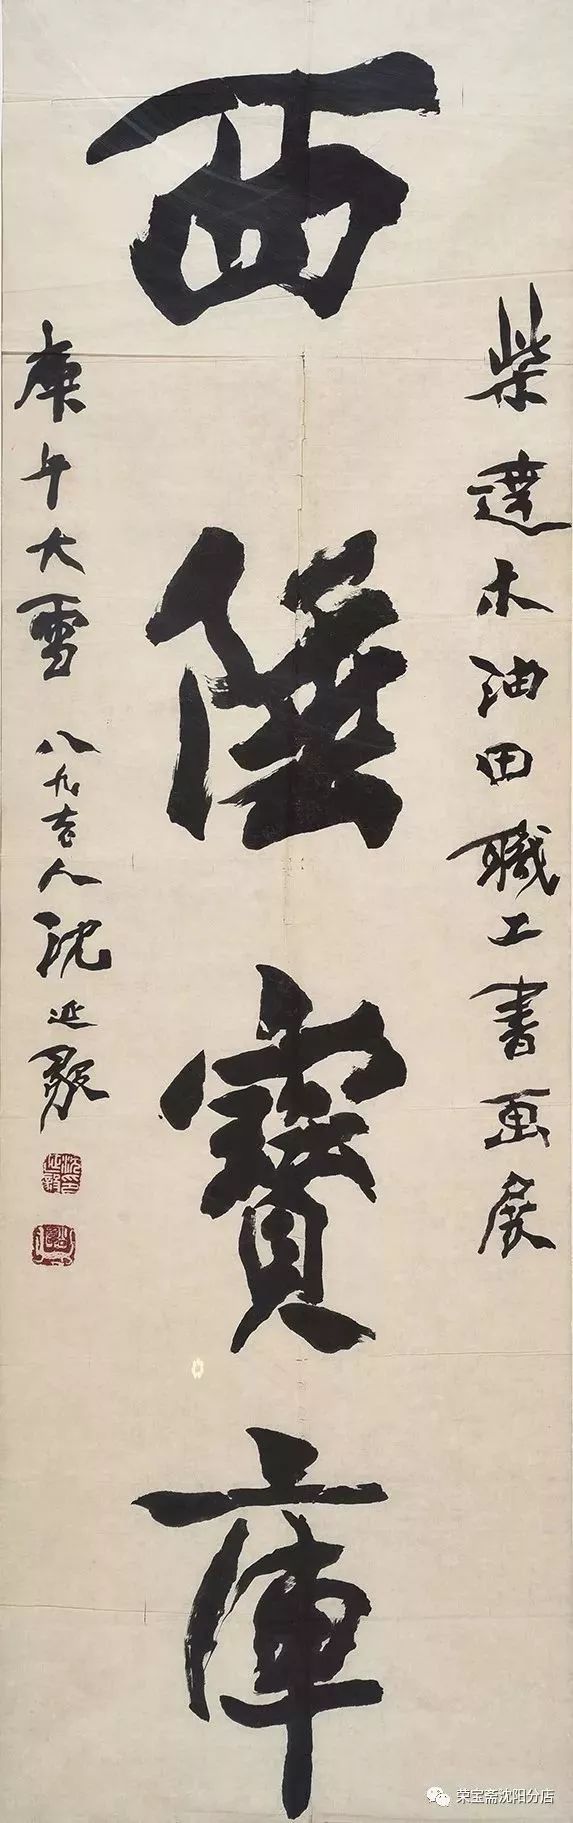 柴達木油田職工書画展
西陲寶庫
庚午大雪 八九老人沈延毅
荣宝斋沈阳分店